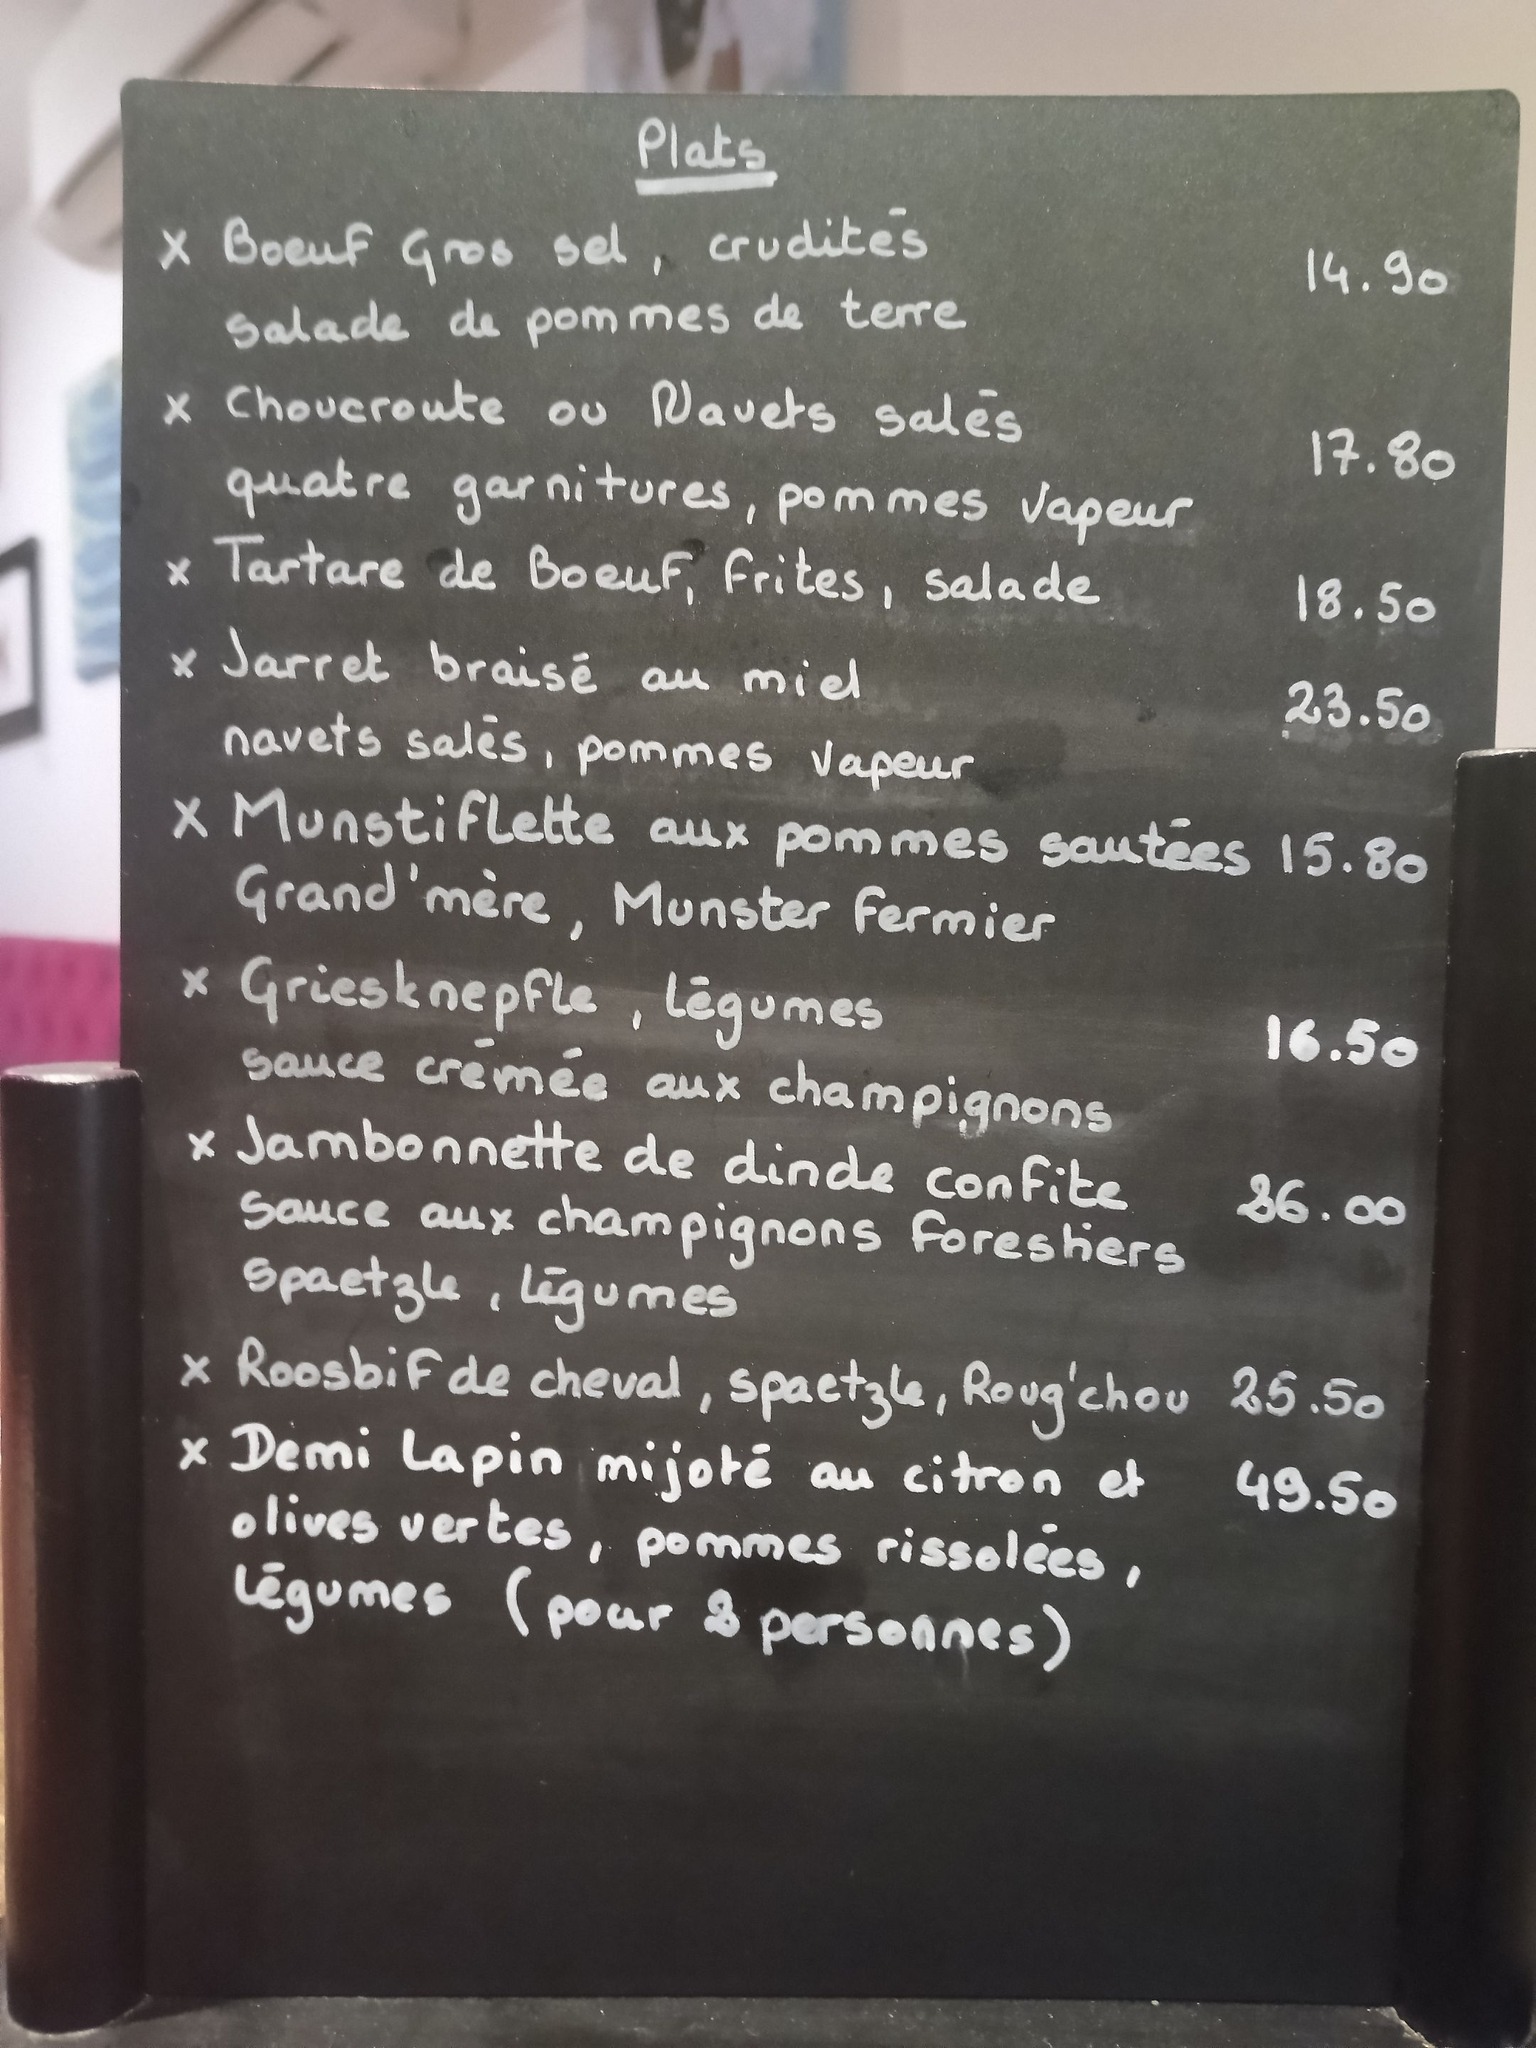 Plats
x Boeuf Gros sel, crudités
14.90
salade de pommes de terre
x Choucroute ou Navets salés
17.80
quatre garnitures, pommes vapeur
x Tartare de Boeuf, frites, salade 18.50
x Jarret braisé au miel
23.50
navets salés, pommes vapeur
x Munstiflette aux pommes sautées 15.80
Grand'mère, Munster fermier
x Griesknepfle, légumes
16.50
sauce crémée aux champignons
x Jambonnette de dinde confite 26.00
sauce aux champignons forestiers
spaetzle, légumes
x Roosbif de cheval, spaetzle, Roug'chou 25.50
x Demi Lapin mijoté au citron et 49.50
olives vertes, pommes rissolées,
légumes (pour 2 personnes)